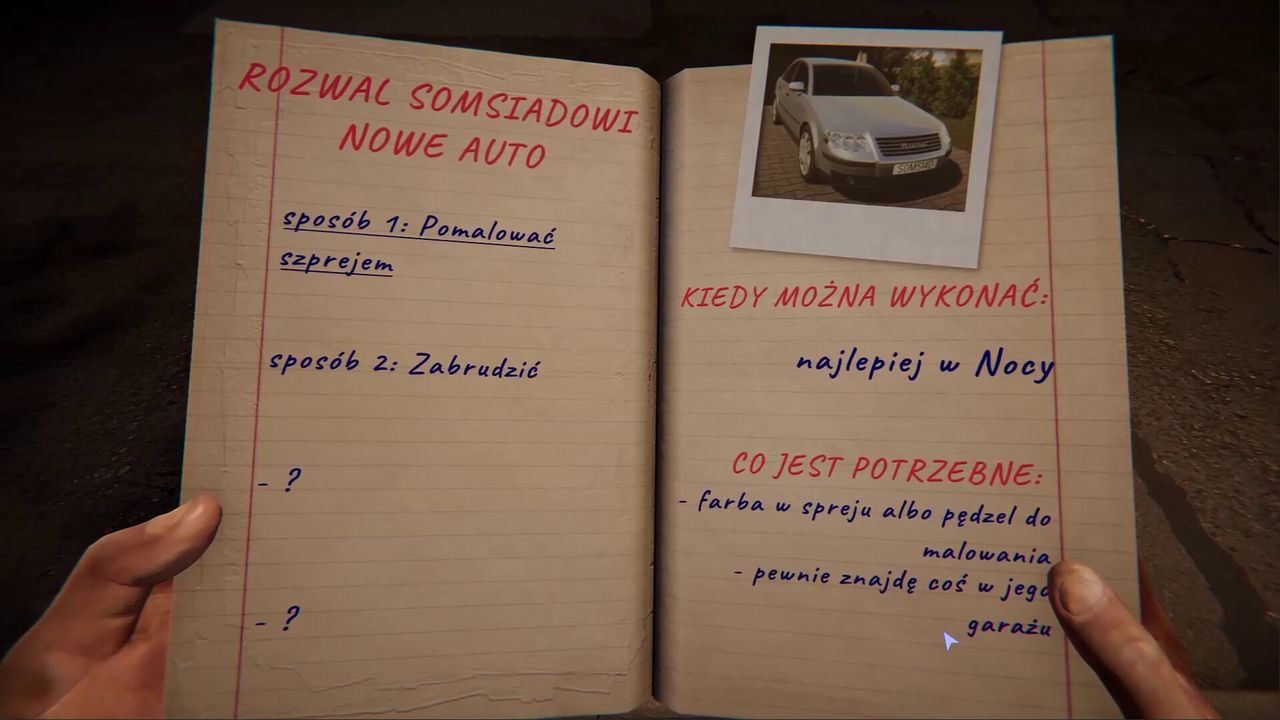 ROZWAL SOMSIADOWI
NOWE AUTO
sposób 1: Pomalować
szprejem
sposób 2: Zabrudzić
- ?
- ?
SOMSIAD
KIEDY MOŻNA WYKONAĆ:
najlepiej w Nocy
CO JEST POTRZEBNE:
- farba w spreju albo pędzel do
malowania
- pewnie znajdę coś w jego
garażu